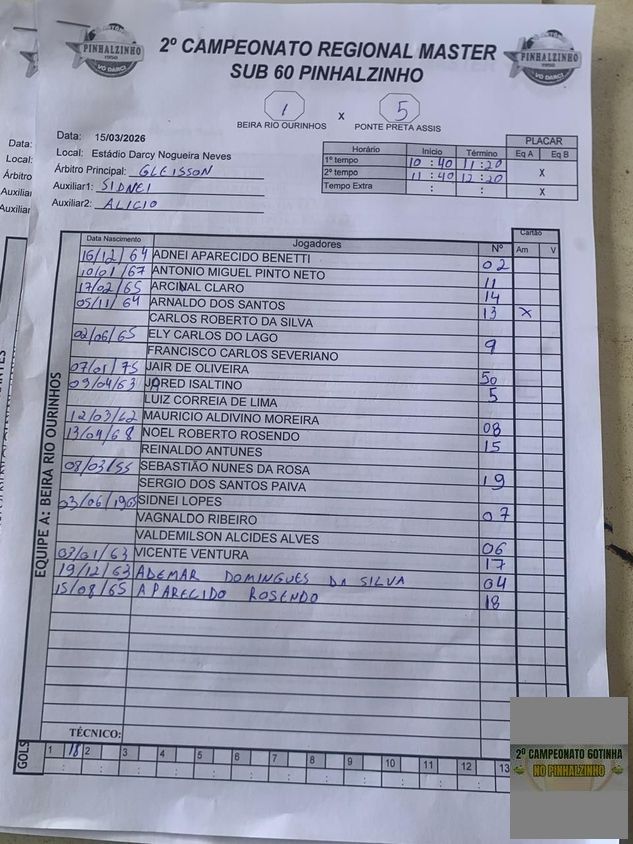 PINHALZINHO
1950
VO DARCI
2º CAMPEONATO REGIONAL MASTER
SUB 60 PINHALZINHO
PINHALZINHO
VO DARCI
1 X 5
BEIRA RIO OURINHOS PONTE PRETA ASSIS
Data: 15/03/2026
Local: Estádio Darcy Nogueira Neves
Árbitro Principal: GLEISSON
Auxiliar1: SIDNEI
Auxiliar2: ALICIO
PLACAR
Horário Início Término Eq A Eq B
1º tempo 10:40 11:20 X
2º tempo 11:40 12:20
Tempo Extra : : X
Data:
Local:
Árbitro
Auxiliar
Auxiliar
Cartão
Data Nascimento Jogadores Nº Am V
16/12/64 ADNEI APARECIDO BENETTI 02
10/01/67 ANTONIO MIGUEL PINTO NETO
17/02/65 ARCINAL CLARO 11
05/11/64 ARNALDO DOS SANTOS 14
CARLOS ROBERTO DA SILVA 13 X
02/06/65 ELY CARLOS DO LAGO
FRANCISCO CARLOS SEVERIANO 9
07/01/75 JAIR DE OLIVEIRA
09/04/63 JARED ISALTINO 50
LUIZ CORREIA DE LIMA 5
12/03/62 MAURICIO ALDIVINO MOREIRA
13/04/68 NOEL ROBERTO ROSENDO 08
REINALDO ANTUNES 15
08/03/55 SEBASTIÃO NUNES DA ROSA
SERGIO DOS SANTOS PAIVA 19
03/06/1965 SIDNEI LOPES
VAGNALDO RIBEIRO 07
VALDEMILSON ALCIDES ALVES
03/01/63 VICENTE VENTURA 06
19/12/63 ADEMAR DOMINGUES DA SILVA 17
15/08/65 APARECIDO ROSENDO 04
18
EQUIPE A: BEIRA RIO OURINHOS
TÉCNICO:
GOLS 1 18 2 3 4 5 6 7 8 9 10 11 12 13
2º CAMPEONATO 60TINHA
NO PINHALZINHO